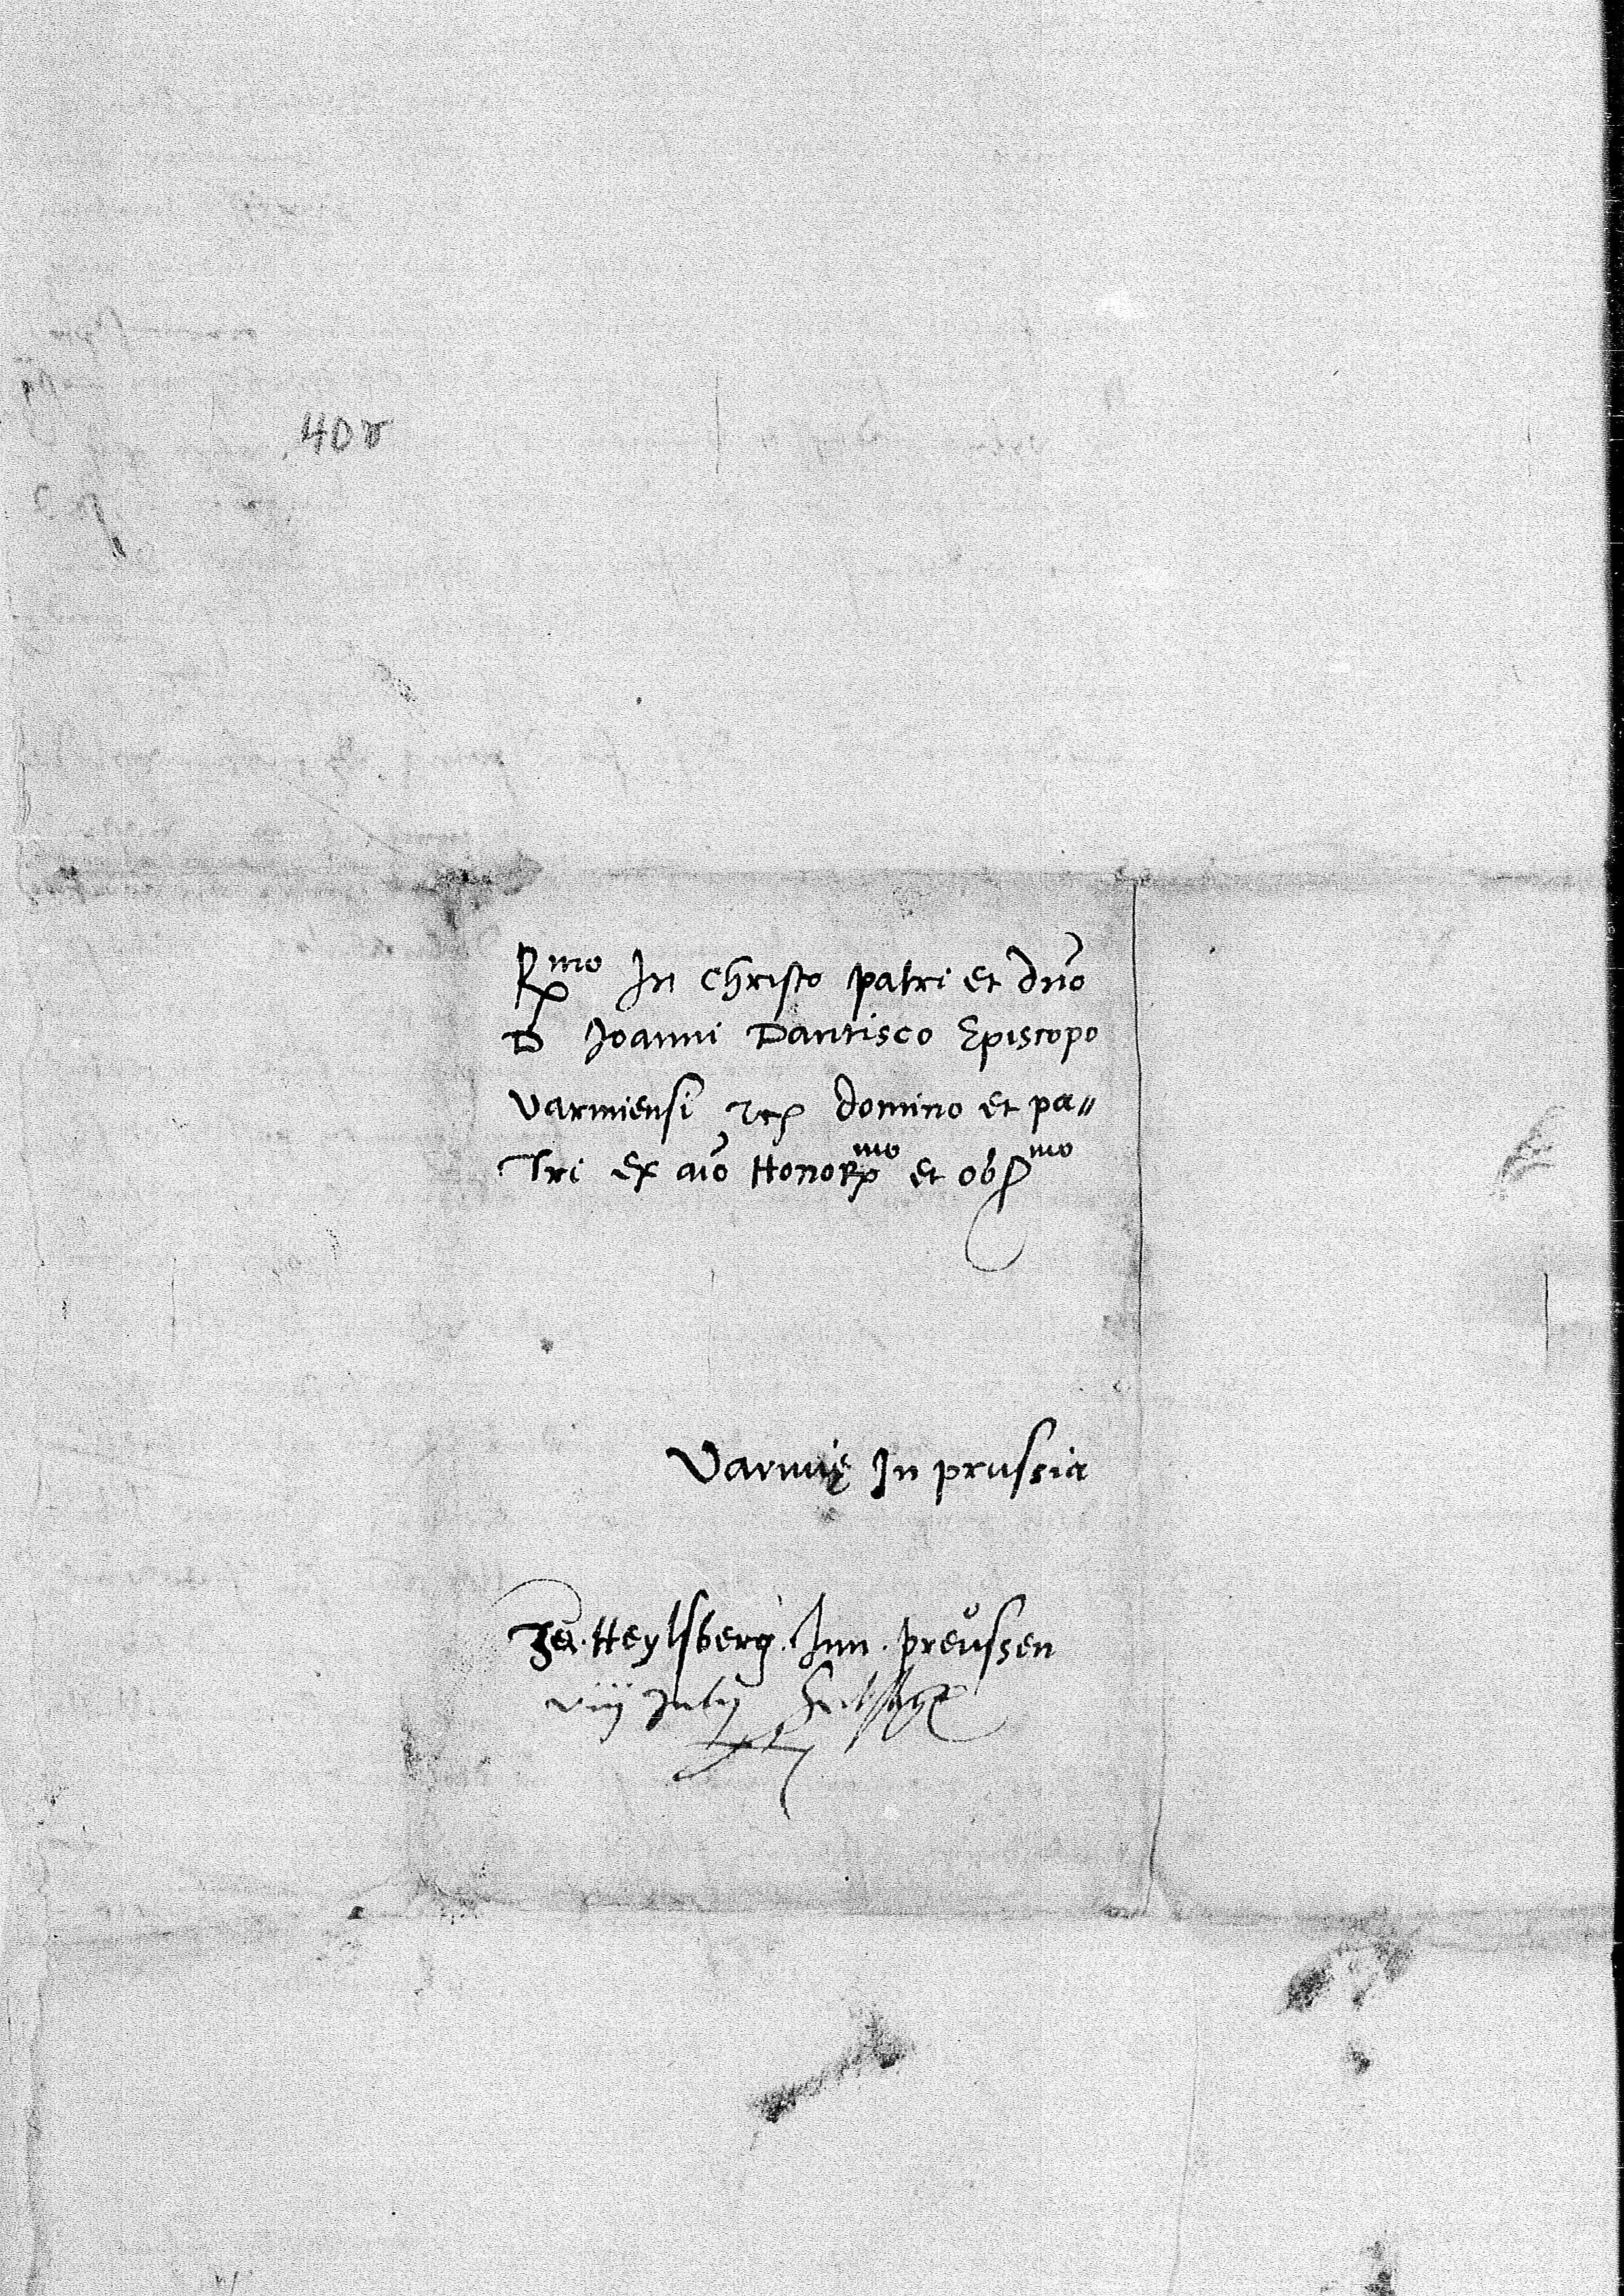 40r
R^mo In christo patri et dño
D Joanni Dantisco Episcopo
varmiensi etc domino et pa=
tri ex aîo Honor^mo et obs^mo
Varmię In prussia
Zů. Heylsberg. Inn. preůssen
viij Julij